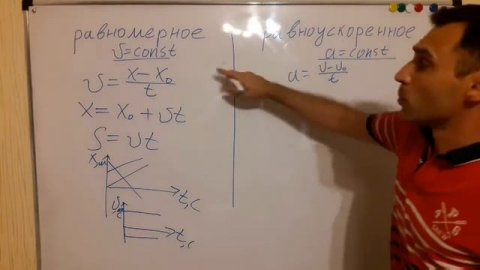 равномерное
υ=const
υ = x − x₀ / t
x = x₀ + υt
S = υt
x,м
t,c
υ,м/с
t,c
равноускоренное
a = const
a = υ − υ₀ / t